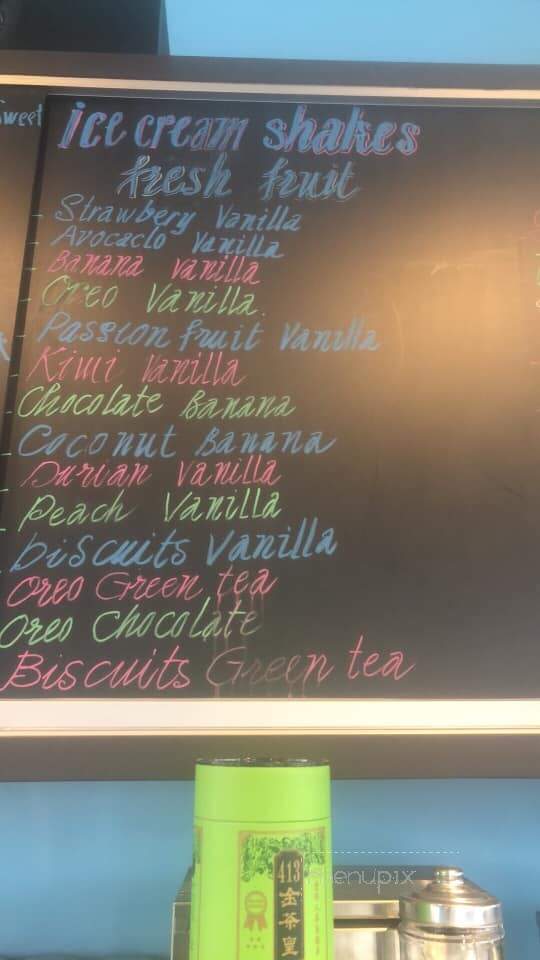 Sweet
ice cream shakes
fresh fruit
- Strawbery Vanilla
- Avocaclo Vanilla
- Banana vanilla
- Oreo Vanilla.
- Passion fruit Vanilla
- Kiwi Vanilla
- Chocolate Banana
- Coconut Banana
- Durian Vanilla
- Peach Vanilla
- biscuits Vanilla
Oreo Green tea
Oreo Chocolate
Biscuits Green tea
413
金茶皇
menupix